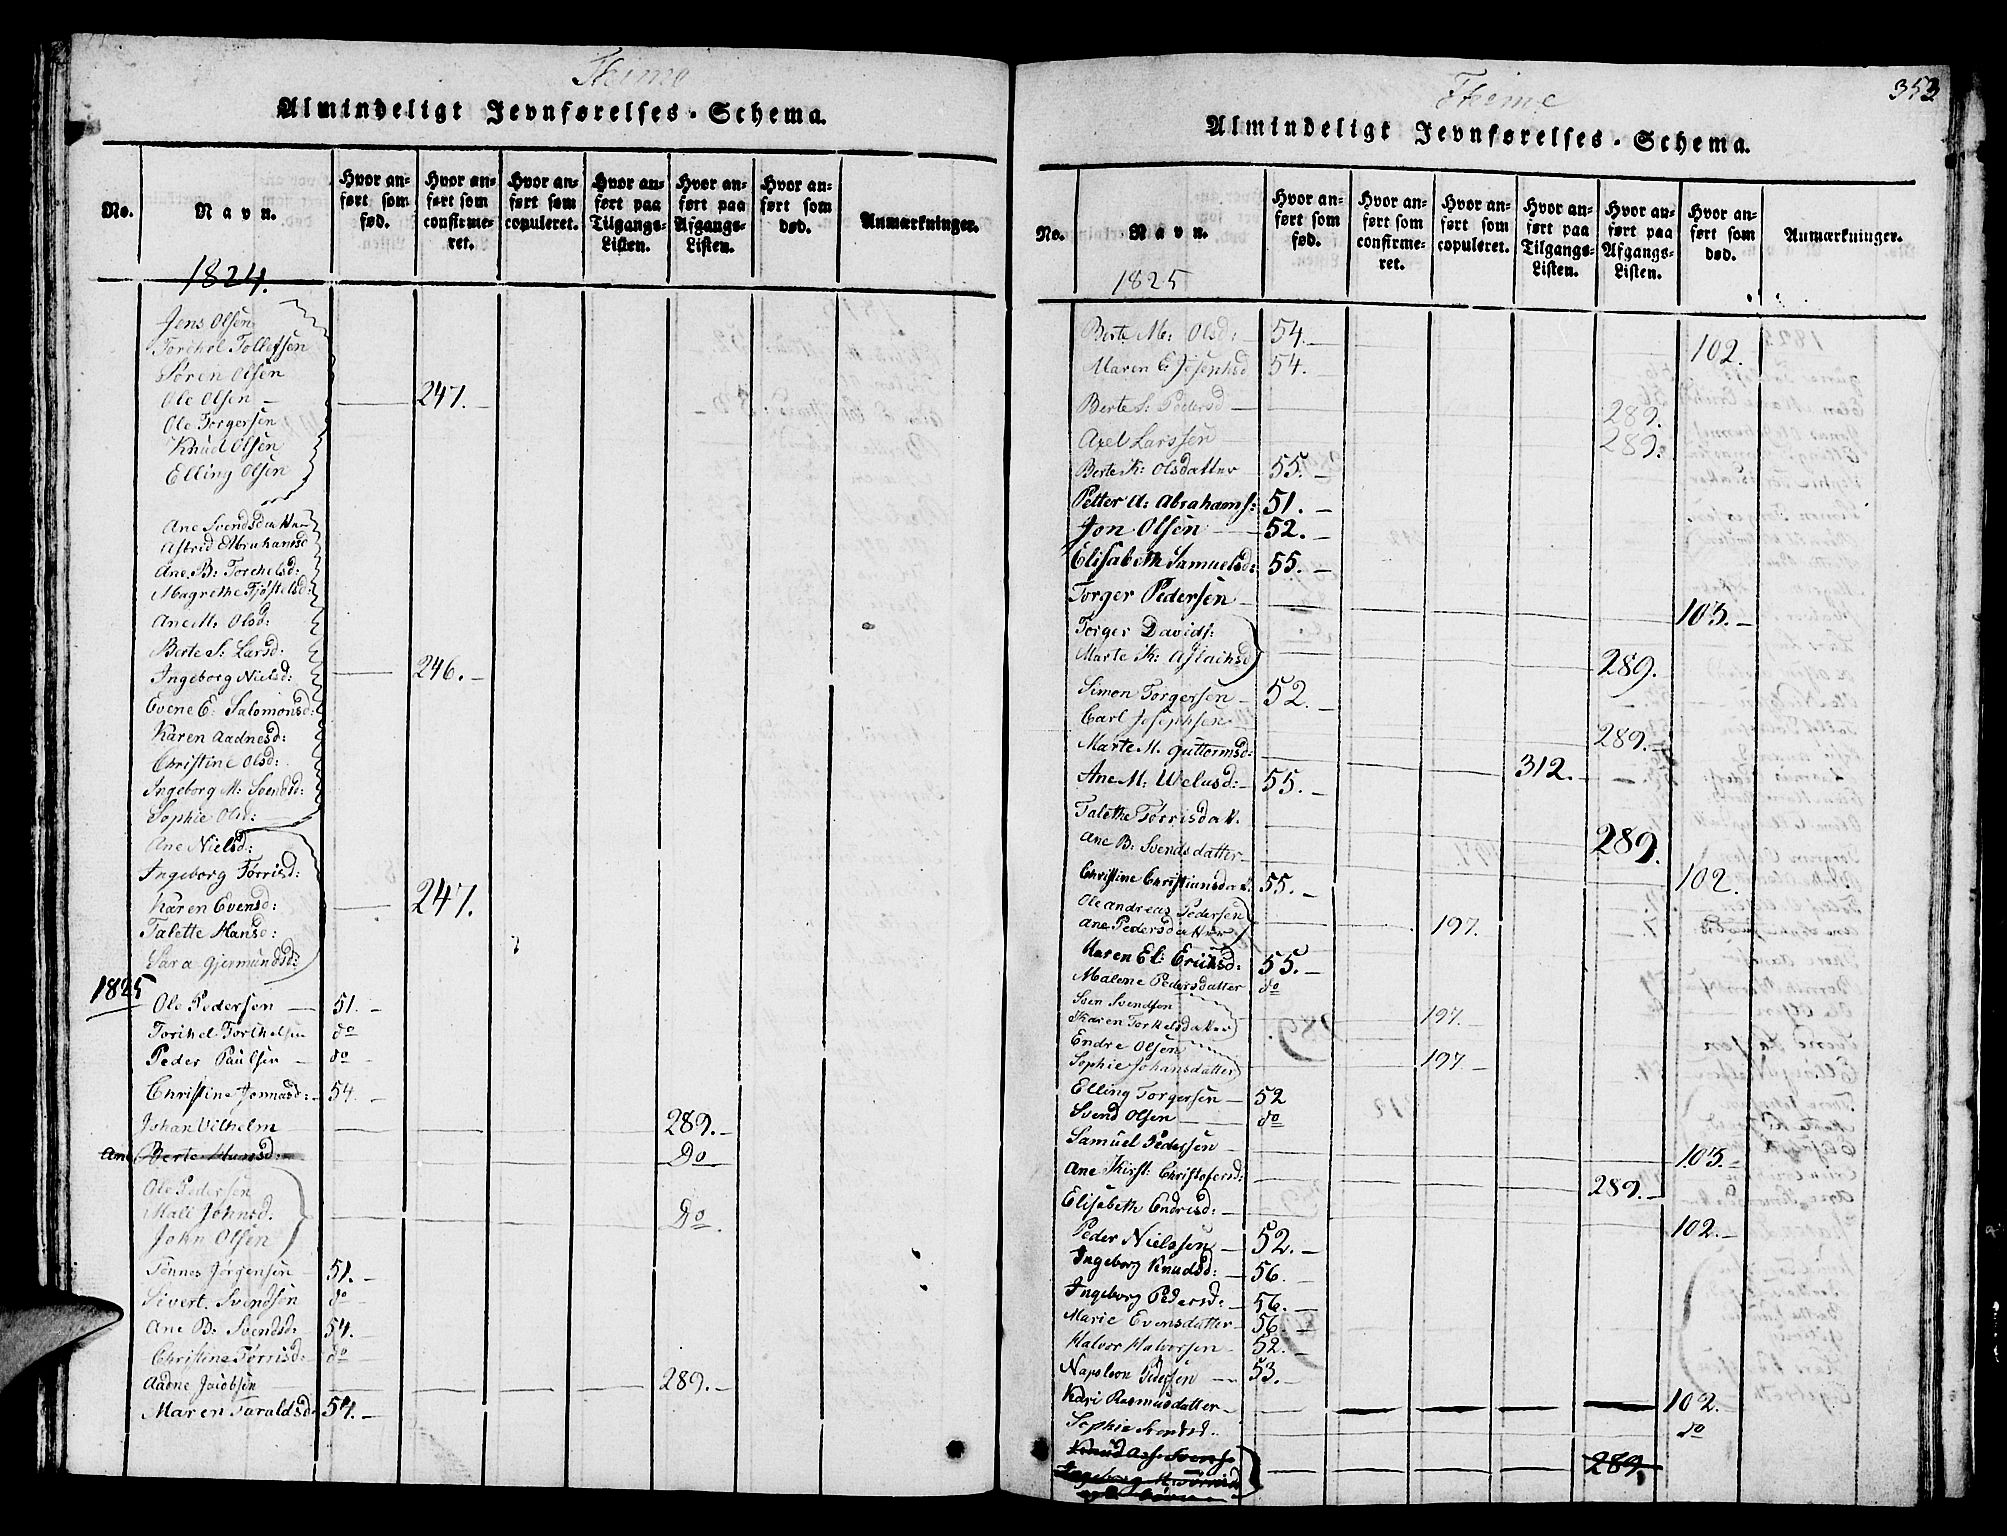 Thime
Almindeligt Jevnførelses-Schema.
No.
Navn.
Hvor anført som fød.
Hvor anført som confirmeret.
Hvor anført som copuleret.
Hvor anført paa Tilgangs-Listen.
Hvor anført paa Afgangs-Listen.
Hvor anført som død.
Anmærkninger.
1824.
Jens Olsen
Torchel Tollefsen
Søren Olsen
Ole Olsen — 247. —
Ole Torgersen
Knud Olsen
Elling Olsen
Ane Svendsdatter
Astrid Abrahamsd
Ane B: Torchelsd:
Magrethe Tjøstelsd:
Ane M: Olsd:
Berte S: Larsd:
Ingeborg Nielsd: — 246. —
Evene E: Salomonsd:
Karen Aadnesd:
Christine Olsd:
Ingeborg M: Svendsd:
Sophie Olsd:
Ane Nielsd:
Ingeborg Tørrisd:
Karen Evensd: — 247. —
Talette Hansd:
Sara Gjermundsd:
1825
Ole Pedersen — 51. —
Torchel Torchelsen do
Peder Paulsen — do —
Christine Jonnasd: — 54. —
Johan Vilhelm — 289. —
Ane Berte Hansd: — Do
Ole Pedersen
Mali Johnsd. — Do.
John Olsen
Tønnes Jørgensen — 51. —
Sivert Svendsen do —
Ane B: Svendsd: 54. —
Christine Tørrisd: do —
Aadne Jacobsen — 289. —
Maren Taraldsd: 54. —
353
Thime
Almindeligt Jevnførelses-Schema.
No.
Navn.
Hvor anført som fød.
Hvor anført som confirmeret.
Hvor anført som copuleret.
Hvor anført paa Tilgangs-Listen.
Hvor anført paa Afgangs-Listen.
Hvor anført som død.
Anmærkninger.
1825
Berte M: Olsd: 54. —
Maren E Josephsd 54. — 102.
Berte S: Pedersd — 289.
Axel Larssen — 289.
Berte K: Olsdatter — 55. —
Petter A: Abrahams: 51. —
Jon Olsen — 52. —
Elisabeth Samuelsd: 55. —
Torger Pedersen — 103. —
Torger Davids:
Marte K: Aslachsd — 289. —
Simon Torgersen — 52. —
Carl Josephsen — 289. —
Marte M. Guttormsd: — 312. —
Ane M: Welusd: — 55. —
Talethe Tørrisdatt.
Ane B: Svendsdatter — 289.
Christine Christiansdatt. 55. — 102.
Ole Andreas Pedersen
Ane Pedersdatter — 197. —
Karen El: Erichsd: 55. —
Malene Pedersdatter do
Sven Svendsen
Karen Torkelsdatter — 197. —
Endre Olsen
Sophie Johansdatter — 197. —
Elling Torgersen — 52
Svend Olsen — do
Samuel Pedersen — 103. —
Ane Kirst: Christofersd: — 289. —
Elisabeth Endresd: — 102. —
Peder Nielssen — 52. —
Ingeborg Knudsd: — 56. —
Ingeborg Pedersd: — 56. —
Marie Evensdatter — 56. —
Halvor Halvorsen — 52. —
Napoleon Pedersen — 53. —
Kari Rasmusdatter — 102.
Sophie Svendsd. do
289.